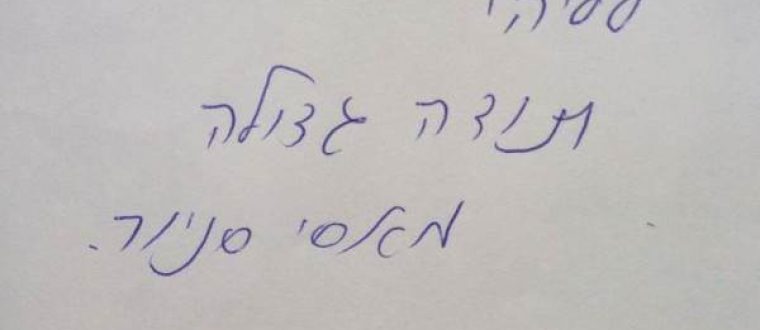 תודה גדולה
מאסי סניור.